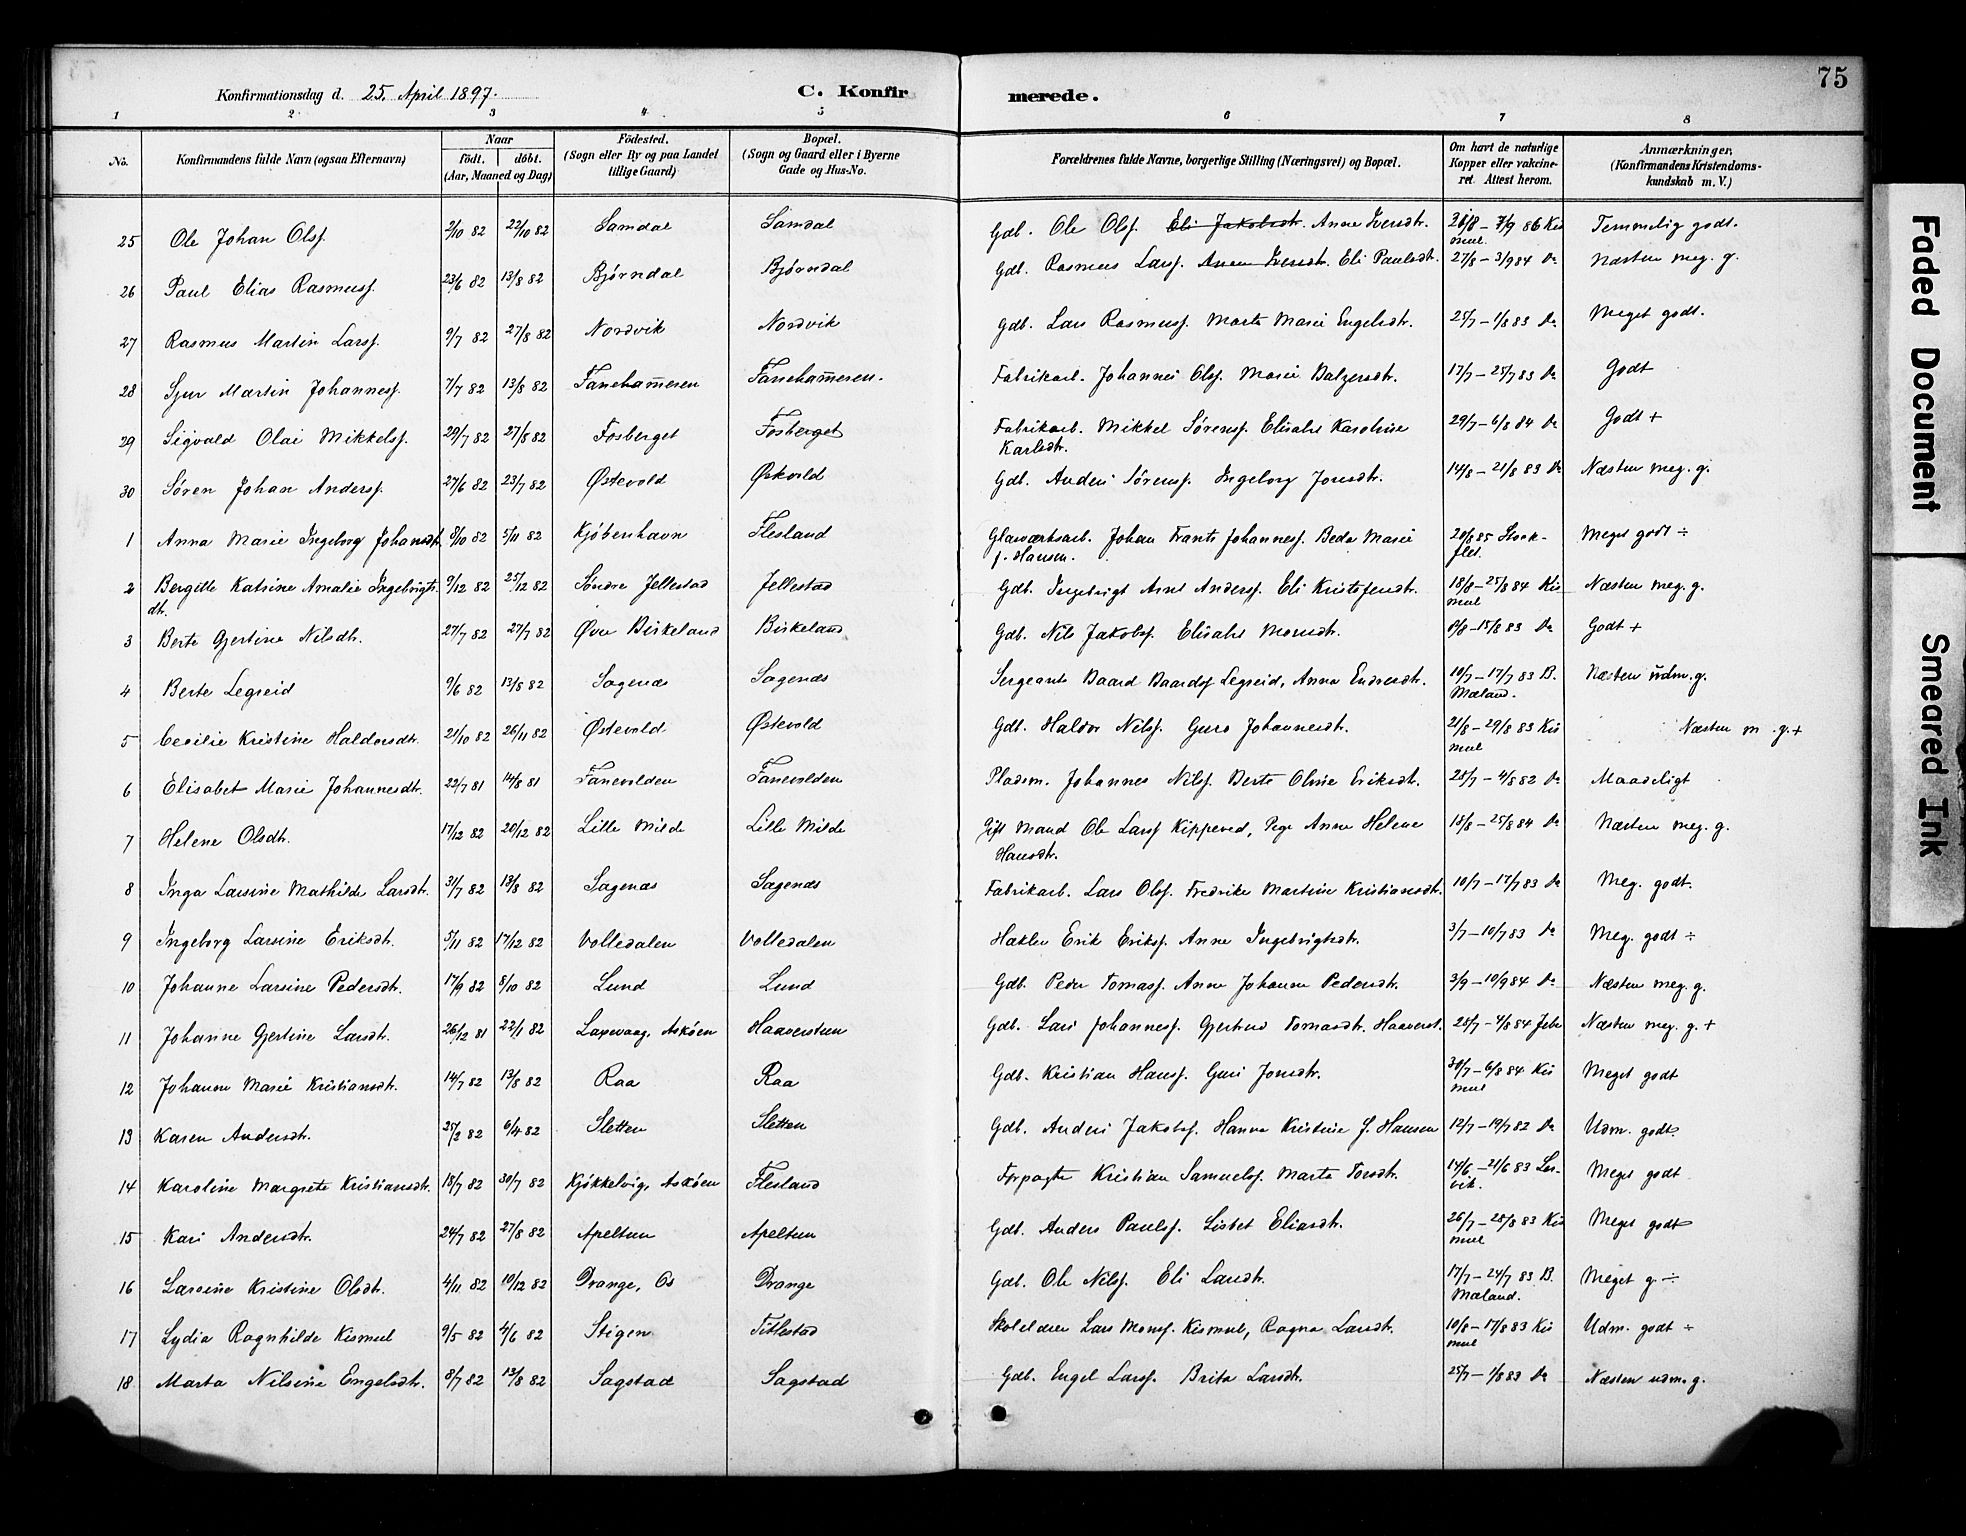 75
Konfirmationsdag d. 25. April 1897. C. Konfirmerede.
1 2 3 4 5 6 7 8
No. Konfirmandens fulde Navn (ogsaa Efternavn) Naar født. døbt. (Aar, Maaned og Dag) Födested. (Sogn eller By og paa Landet tillige Gaard) Bopæl. (Sogn og Gaard eller i Byerne Gade og Hus-No. Forældrenes fulde Navne, borgerlige Stilling (Næringsvei) og Bopæl. Om havt de naturlige Kopper eller vakcineret. Attest herom. Anmærkninger, (Konfirmandens Kristendomskundskab m. V.)
25 Ole Johan Olsf. 2/10 82 22/10 82 Samdal Samdal Gdb. Ole Olsf. Eli Jakobsdtr. Anna Iversdtr. 30/8 – 7/9 86 Kismul. Temmelig godt.
26 Paul Elias Rasmusf. 23/6 82 13/8 82 Bjørndal Bjørndal Gdb. Rasmus Larsf. Anna Iversdtr. Eli Paulsdtr. 27/8 – 3/9 84 Do Næsten meg. g.
27 Rasmus Martin Larsf. 9/7 82 27/8 82 Nordvik Nordvik Gdb. Lars Rasmusf. Marta Marie Engelsdtr. 25/7 – 1/8 83 Do Meget godt.
28 Sjur Martin Johannesf. 7/7 82 13/8 82 Faneham̅eren Faneham̅eren. Fabrikarb. Johannes Olsf. Marie Balzersdtr. 17/7 – 25/7 83 Do Godt
29 Sigvald Olai Mikkelsf. 29/7 82 27/8 82 Fosberget Fosberget Fabrikarb. Mikkel Sørensf. Elisabet Karoline Karlsdtr. 29/7 – 6/8 84 Do Godt +
30 Søren Johan Andersf. 27/6 82 23/7 82 Østevold Østevold Gdb. Anders Sørensf. Ingeborg Jonsdtr. 14/8 – 21/8 83 Do Næsten meg. g.
1 Anna Marie Ingeborg Johansdt. 8/10 82 5/11 82 Kjöbenhavn Flesland Glasværksarb. Johan Frants Johannesf. Beda Marie f. Hansen. 20/8 85 Meget godt ÷
2 Bergitte Katrine Amalie Ingebrigts dt. 9/12 82 25/12 82 Söndre Jellestad Jellestad Gdb. Ingebrigt Arnt Andersf. Eli Kristofersdtr. 18/8 – 25/8 84 Kismul Næsten meg. g.
3 Berte Gjertine Nilsdtr. 27/7 82 27/7 82 Øvre Birkeland Birkeland Gdb. Nils Jakobsf. Elisabet Monsdtr. 8/8 – 15/8 83 Do Godt +
4 Berte Legreid 9/6 82 13/8 82 Sagenæs Sagenæs Sergeant Baard Baardsf Legreid, Anna Endresdtr. 10/7 – 17/7 83 B. Mæland. Næsten udm. g.
5 Cecilie Kristine Haldorsdtr. 21/10 82 26/11 82 Østevold Østevold Gdb. Haldor Nilsf. Guro Johannesdtr. 21/8 – 29/8 83 Kismul Næsten m. g. +
6 Elisabet Marie Johannesdtr. 22/7 81 14/8 81 Fanevolden Fanevolden Pladsm. Johannes Nilsf. Berte Oline Eriksdtr. 28/7 – 4/8 82 Do Maadeligt
7 Helene Olsdtr. 17/12 82 20/12 82 Lille Milde Lille Milde Gift Mand Ole Larsf Kippeved, Pige Anna Helene Hansdtr. 18/8 – 25/8 84 Do Næsten meg. g.
8 Inga Larsine Mathilde Larsdtr. 31/7 82 13/8 82 Sagenæs Sagenæs Fabrikarb. Lars Olsf. Fredrike Martine Kristiansdtr. 10/7 – 17/7 83 Do Meg. godt.
9 Ingeborg Larsine Eriksdtr. 5/11 82 17/12 82 Volledalen Volledalen Erik Eriksf. Anna Ingebrigtsdtr. 3/7 – 10/7 83 Do Meg. godt ÷
10 Johanne Larsine Pedersdtr. 17/9 82 8/10 82 Lund Lund Gdb. Peder Tomasf. Anna Johanna Pedersdtr. 3/9 – 10/9 84 Do Næsten meg. g.
11 Johanne Gjertine Larsdtr. 26/12 81 22/1 82 Laxevaag, Asköen Haaversteen Gdb. Lars Johannesf. Gjertrud Tomasdtr. Haaverst. 28/7 – 4/8 84 Næsten meg. g. +
12 Johanna Marie Kristiansdtr. 14/7 82 13/8 82 Raa Raa Gdb. Kristian Hansf. Guri Jonsdtr. 30/7 – 6/8 84 Kismul Meget godt
13 Karen Andersdtr. 25/2 82 6/4 82 Sletten Sletten Gdb. Anders Jakobsf. Hanna Kristine f. Hansen 12/7 – 19/7 82 Do Udm. godt
14 Karoline Margrete Kristiansdtr. 18/7 82 30/7 82 Kjøkkelvig, Asköen Flesland Forpagter Kristian Samuelsf. Marta Torsdtr. 14/6 – 21/6 83 Lervik. Meget godt
15 Kari Andersdtr. 24/7 82 27/8 82 Apeltun Apeltun Gdb. Anders Paulsf. Lisbet Eliasdtr. 26/7 – 28/8 83 Kismul Meget godt
16 Larsine Kristine Olsdtr. 4/11 82 10/12 82 Drange, Os Drange Gdb. Ole Nilsf. Eli Larsdtr. 17/7 – 24/7 83 B. Mæland. Meget g. ÷
17 Lydia Ragnhilde Kismul 9/5 82 4/6 82 Stigen Titlestad Skolelærer Lars Monsf. Kismul, Ragna Larsdtr. 10/8 – 17/8 83 Kismul Udm. godt ÷
18 Marta Nilsine Engelsdtr. 8/7 82 13/8 82 Sagstad Sagstad Gdb. Engel Larsf. Brita Larsdtr. 25/7 – 1/8 83 Do Næsten udm. g.
Faded Document
Smeared Ink